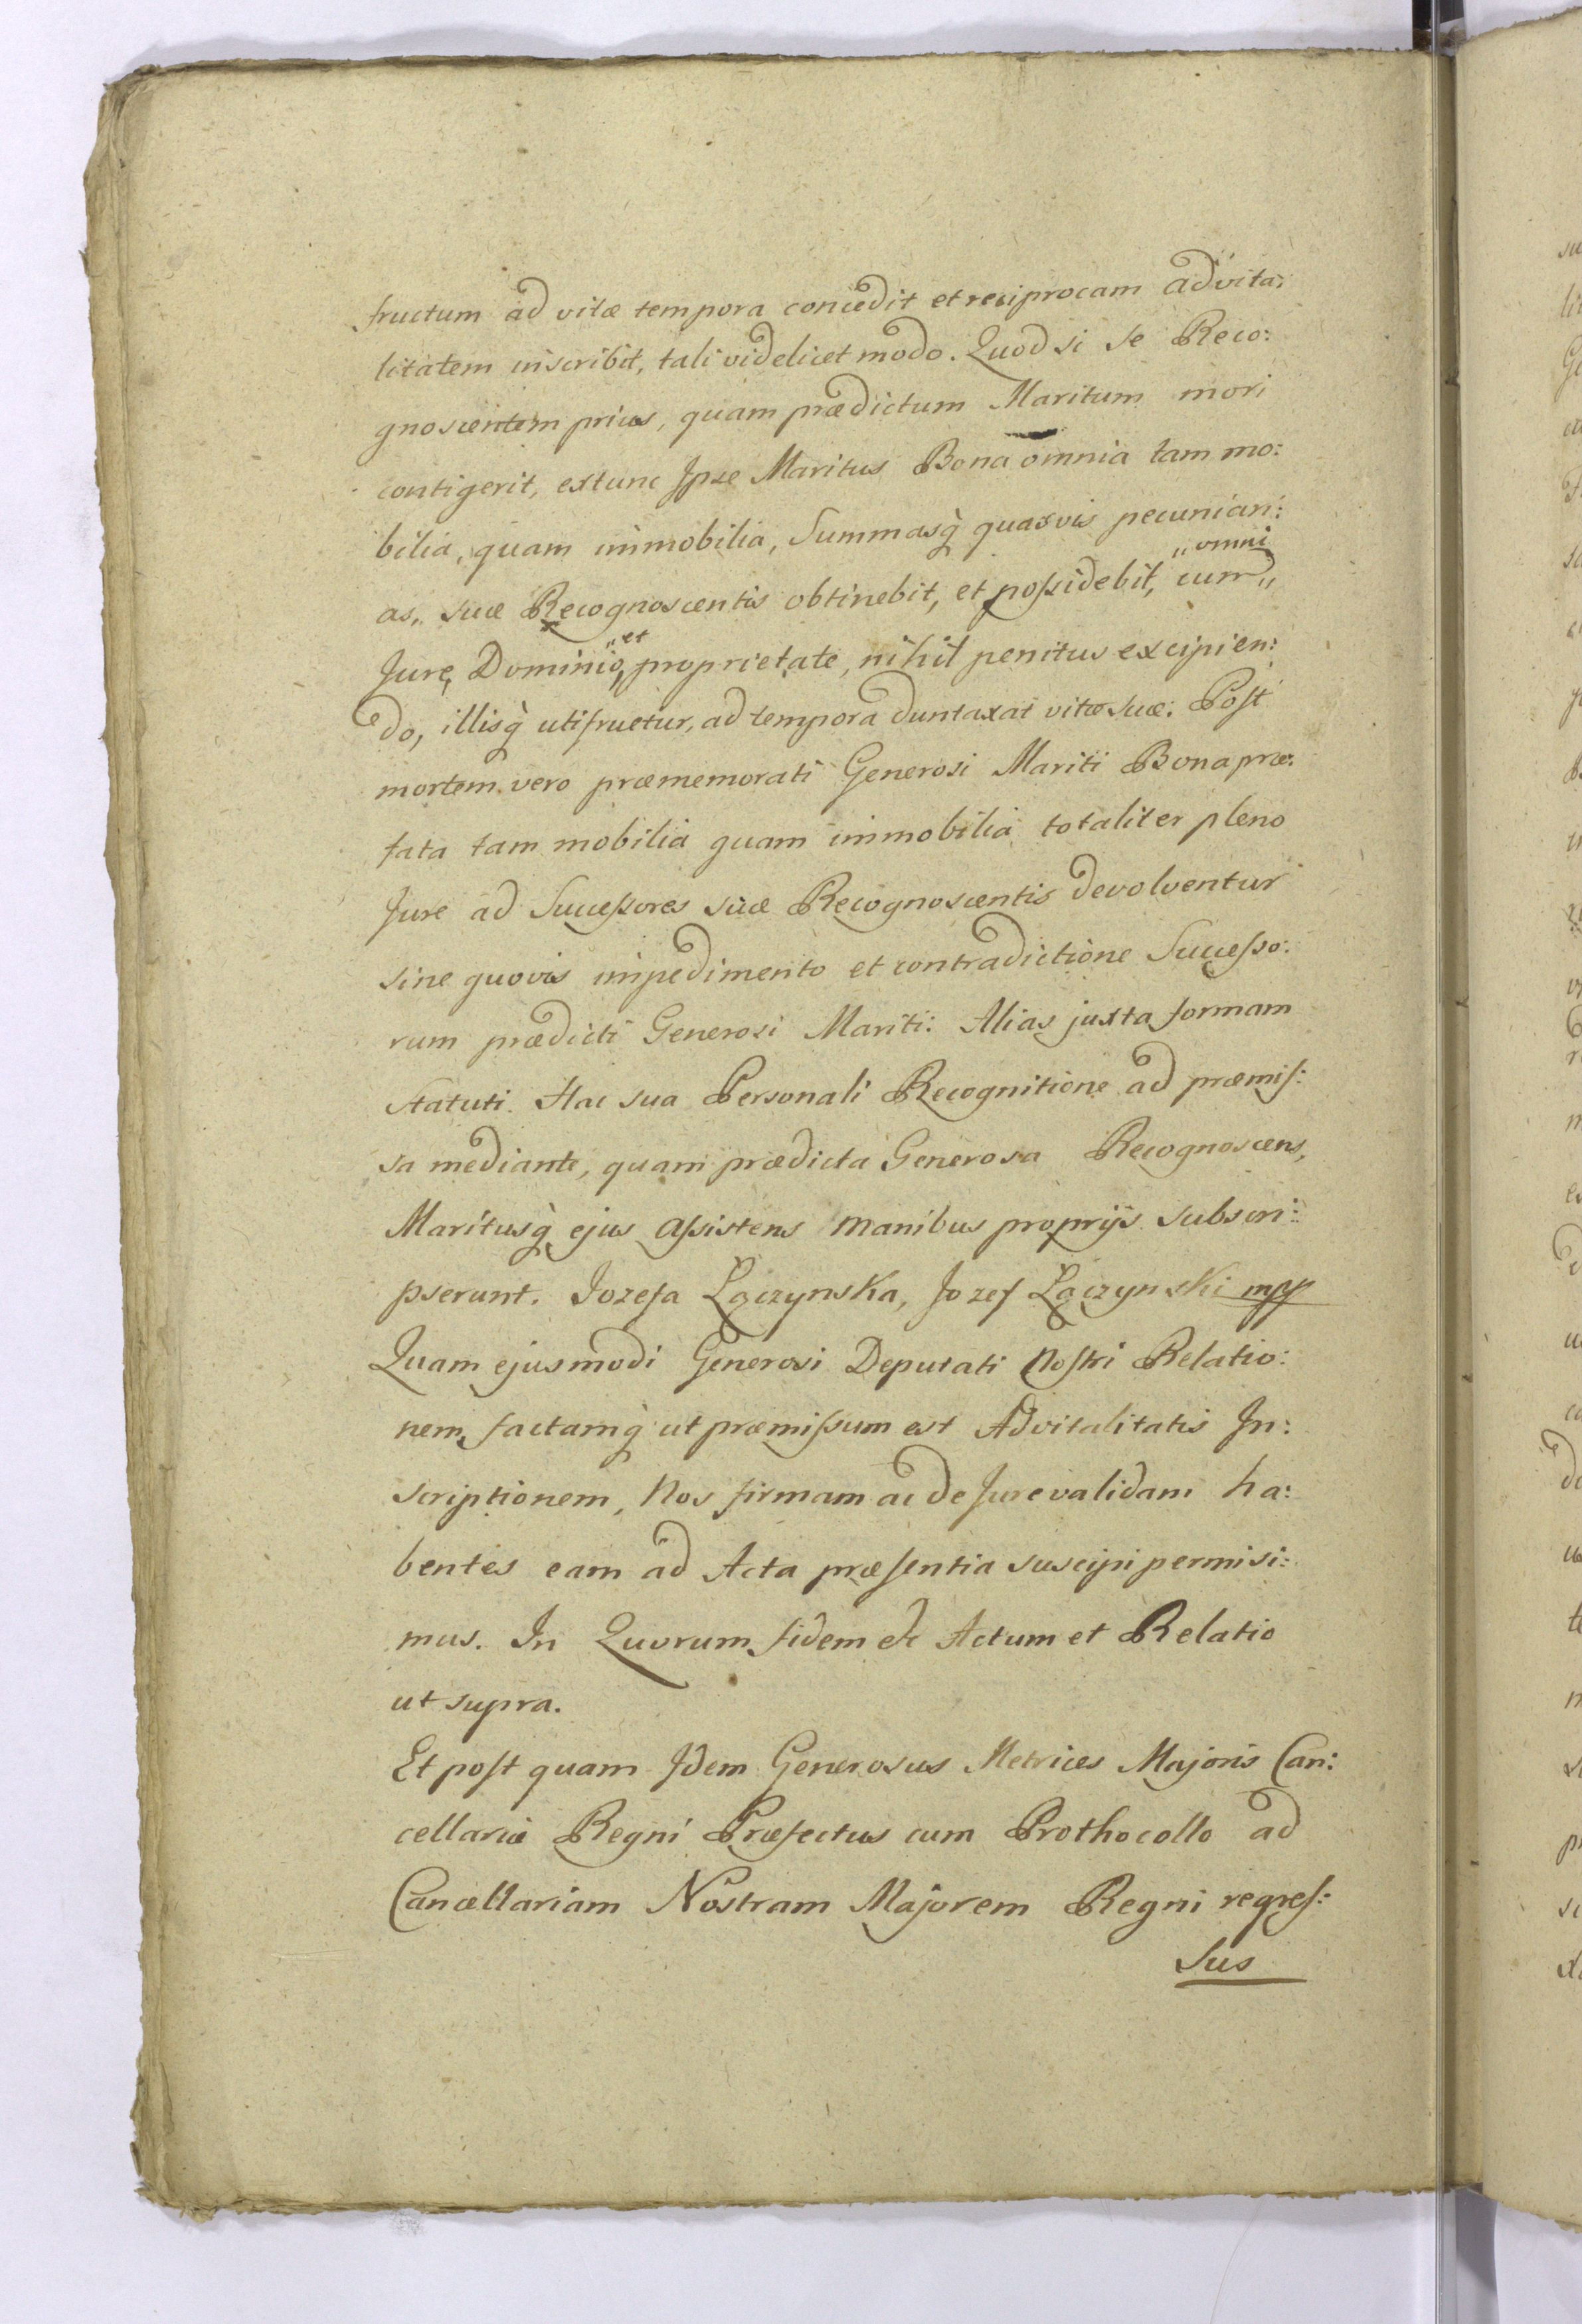 fructum ad vitæ tempora concedit et reciprocam advita:
litatem inscribit, tali videlicet modo. Quod si se Reco:
gnoscentem prius, quam prædictum Maritum mori
contigerit, extunc Ipse Maritus Bona omnia tam mo:
bilia, quam immobilia, Summasq̀ quasvis pecuniari:
„omni
as, suæ Recognoscentis obtinebit, et poſsidebit, cum„
„et
Jure, Dominio, proprietate, nihil penitus excipien:
do, illisq̀ utifruetur, ad tempora duntaxat vitæ suæ: Poſt
mortem vero præmemorati Generosi Mariti Bona præ:
fata tam mobilia quam immobilia totaliter pleno
Jure ad Succeſsores suæ Recognoscentis devolventur
sine quovis impedimento et contradictione Succeſso:
rum prædicti Generosi Mariti: Alias juxta formam
Statuti. Hac sua Personali Recognitione ad præmiſ:
sa mediante, quam prædicta Generosa Recognoscens,
Maritusq̀ ejus aſsistens manibus proprijs subscri:
pserunt. Jozefa Łączynska, Jozef Łączynski mpp
Quam ejusmodi Generosi Deputati Noſtri Relatio:
nem, factamq̀ ut præmiſsum est Advitalitatis In:
scriptionem, Nos firmam ac de Jure validam ha:
bentes eam ad Acta præſentia suscipi permisi:
mus. In Quorum fidem etc Actum et Relatio
ut supra.
Et poſt quam Idem Generosus Metrices Majoris Can:
cellariæ Regni Præfectus cum Prothocollo ad
Cancellariam Nostram Majorem Regni regreſ:
Sus